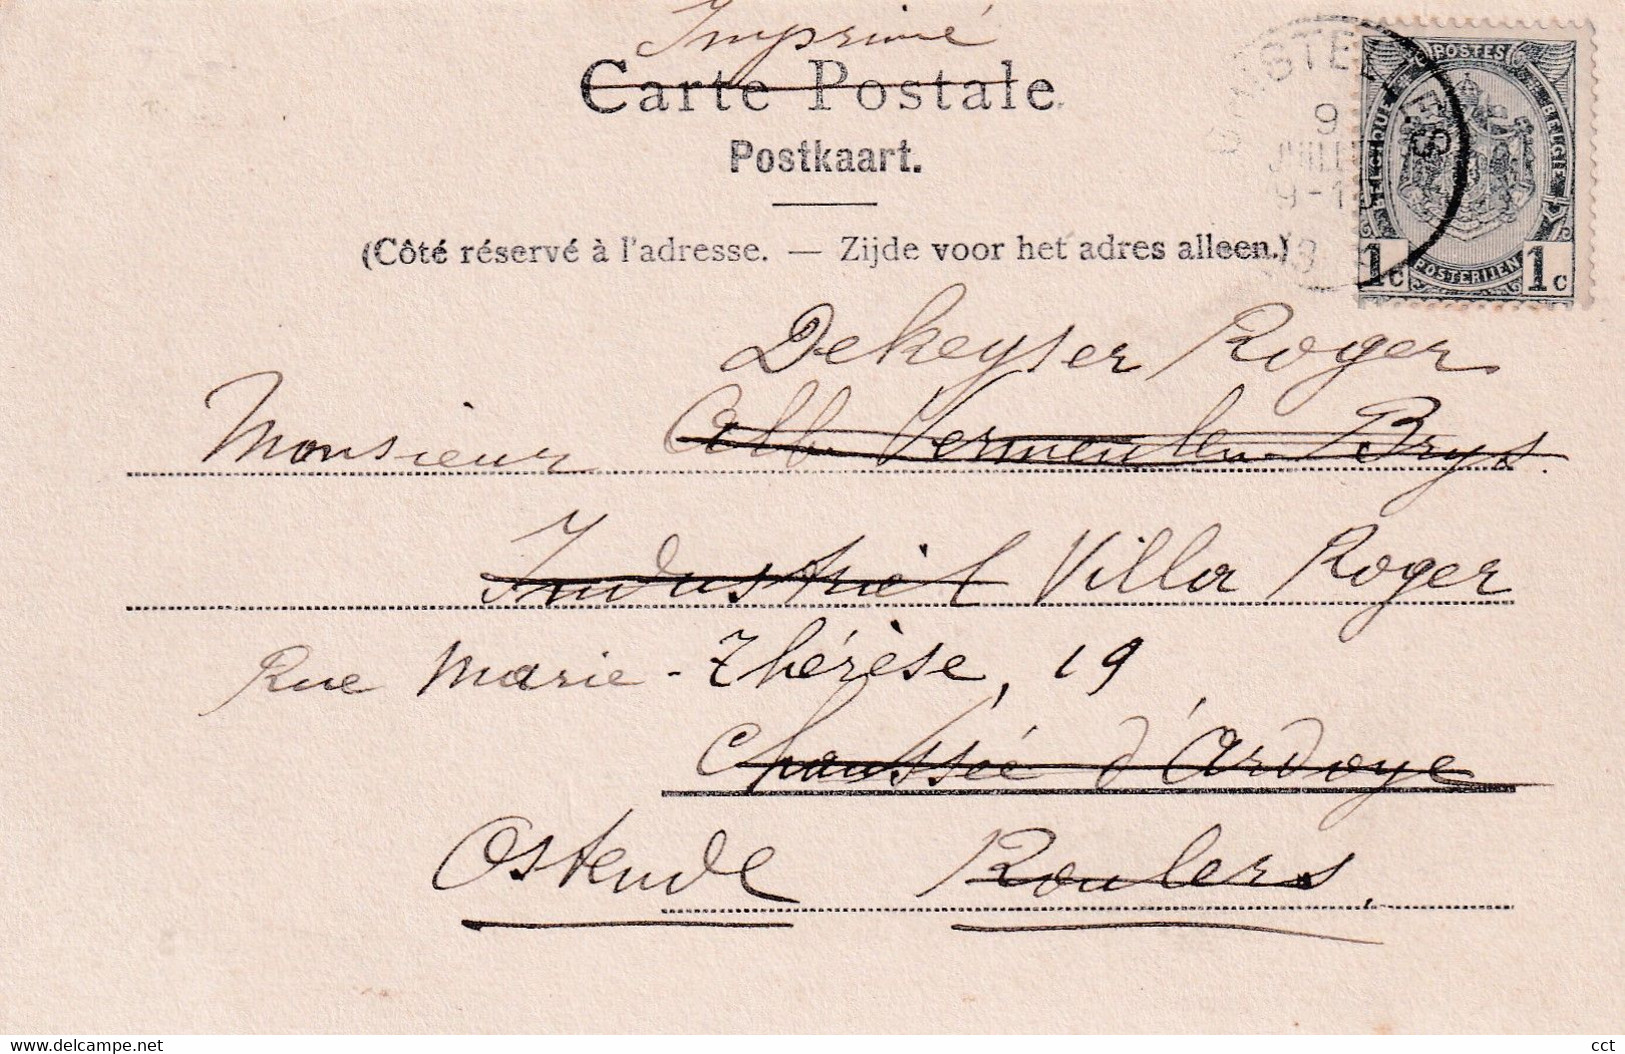 Imprimé
Carte Postale
Postkaart.
(Côté réservé à l'adresse. — Zijde voor het adres alleen.)
POSTES
BELGIQUE
BELGIË
POSTERIJEN
1c 1c
9
JUILL
9-1
Dekeyser Roger
Monsieur Alb. Vermeulen-Brys.
Industriel Villa Roger
Rue Marie-Thérèse, 19
Chaussée d'Ardoye
Ostende Roulers,
delcampe.net
cct